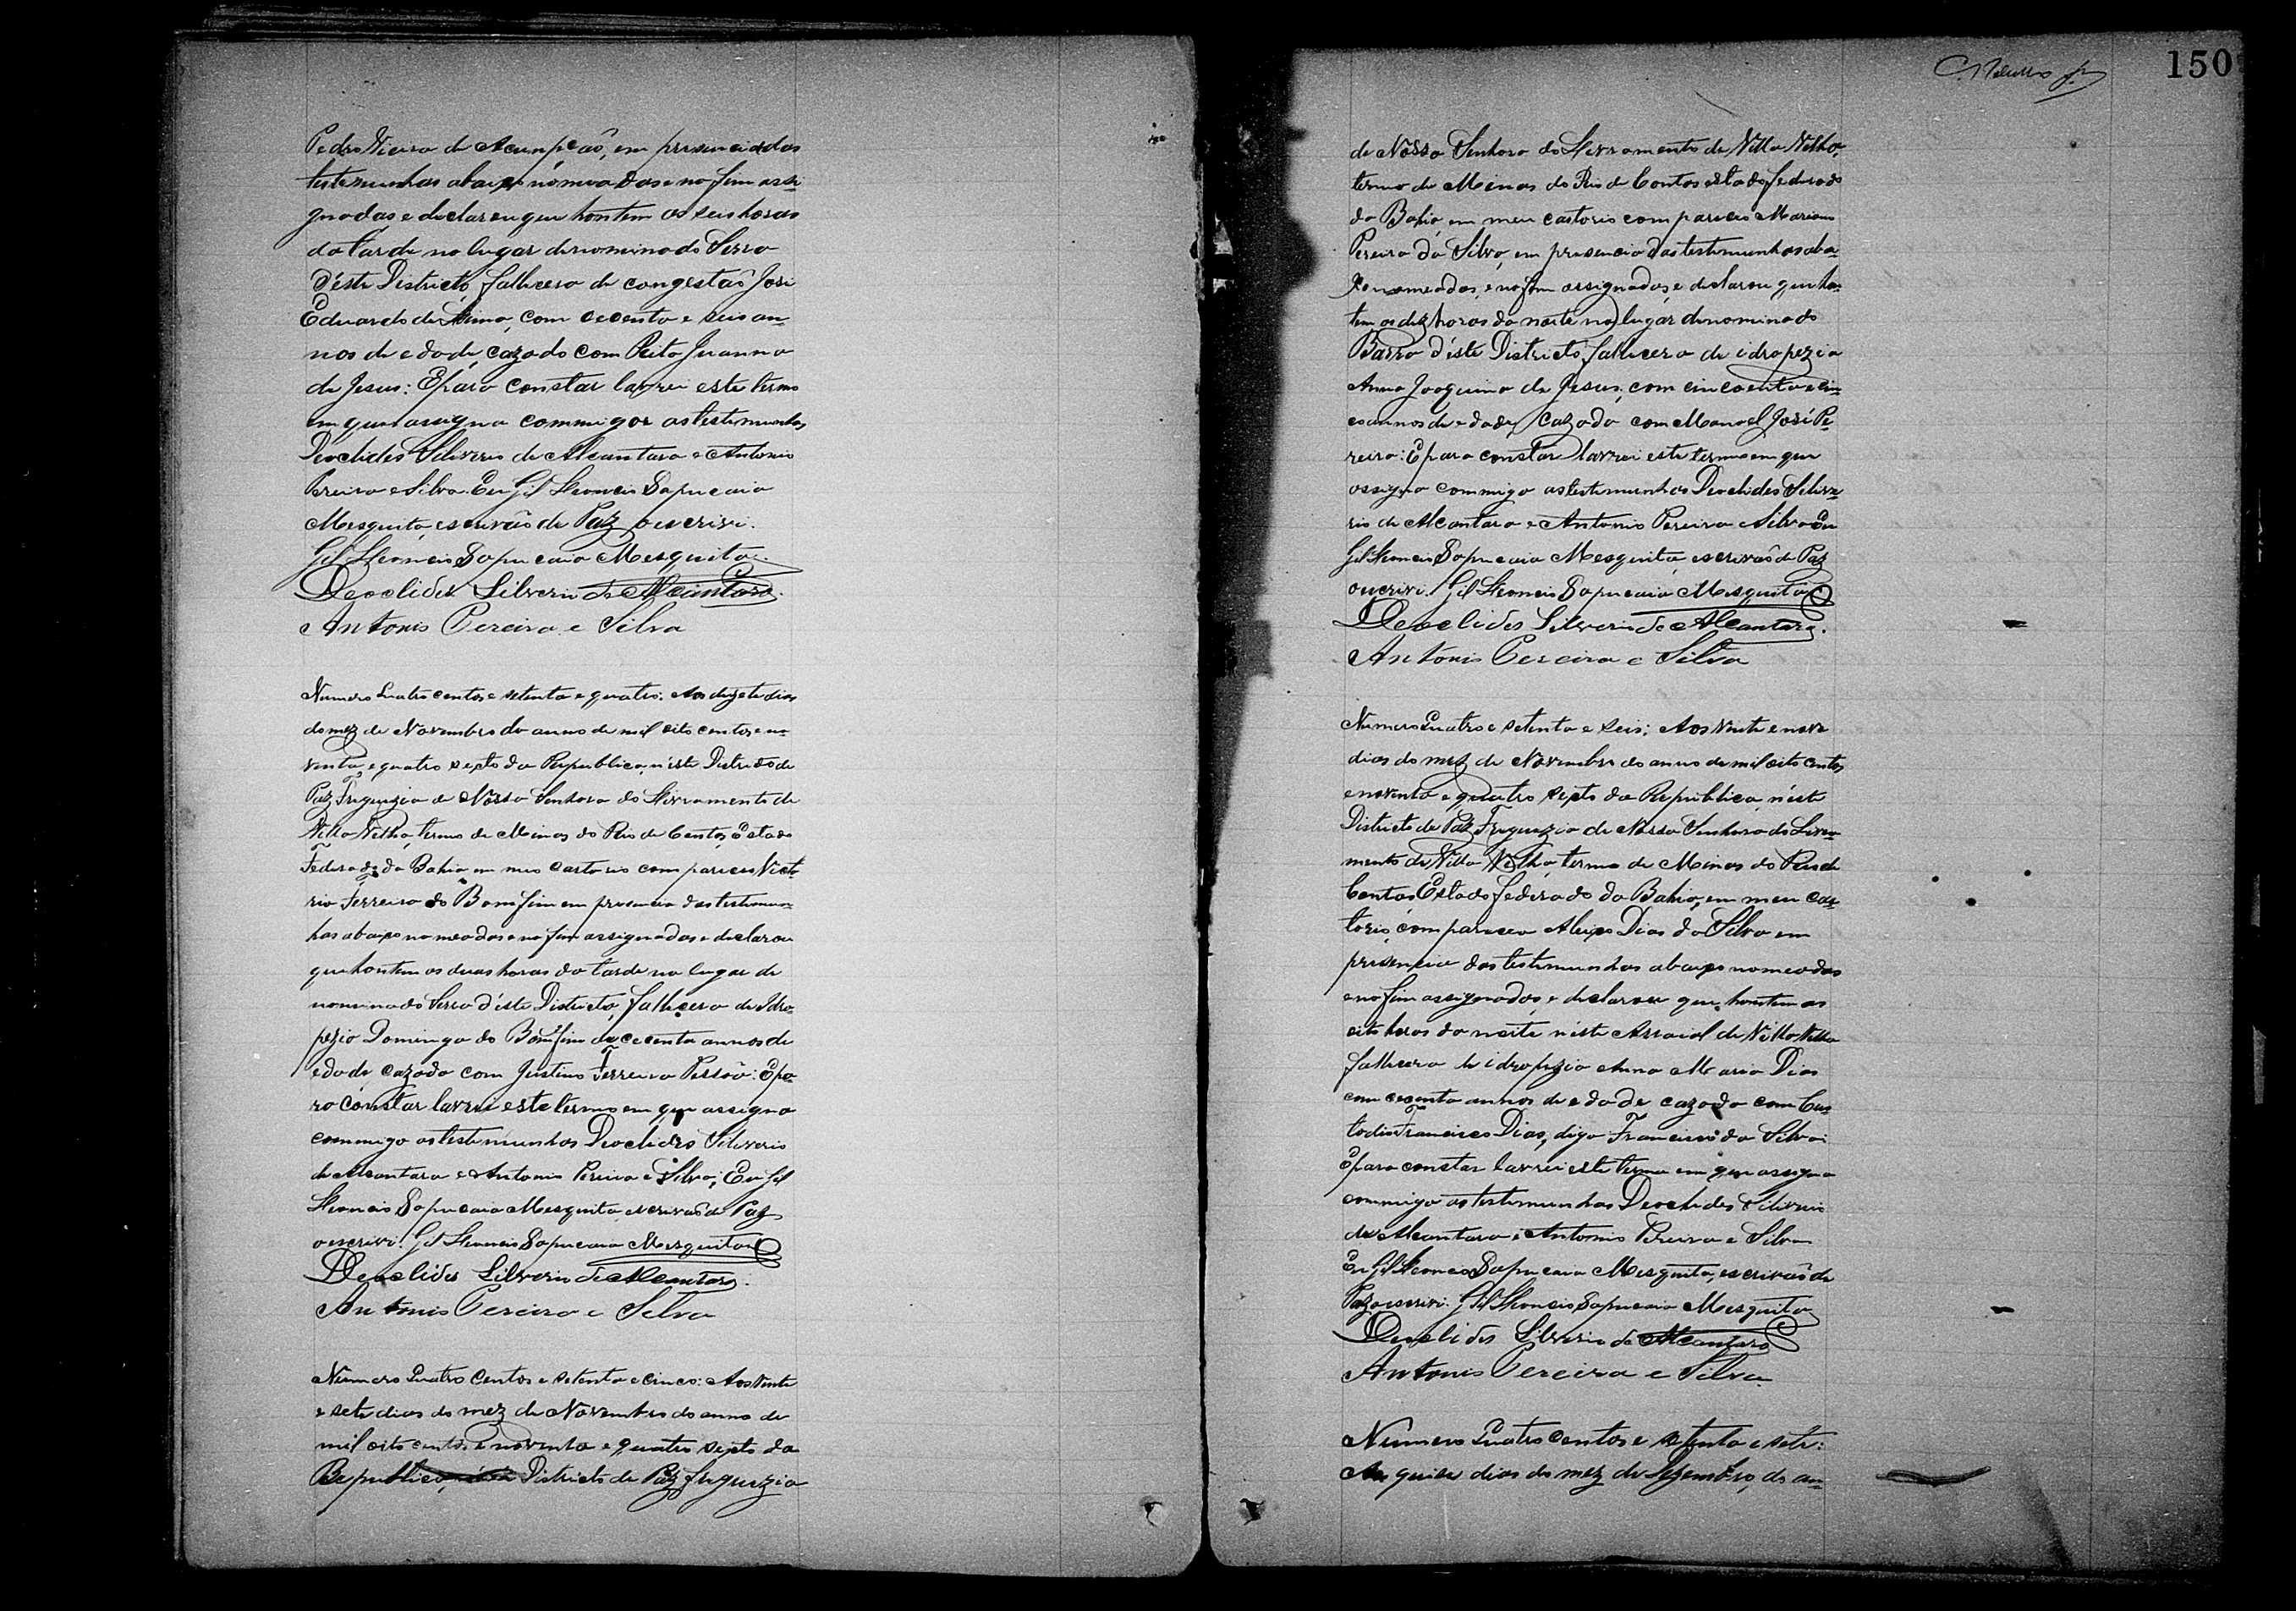 Pedro Vieira de Acumpção, em presencia das
testemunhas abaixo nomeadas e no fim assi
gnadas e declarou que hontem as seis horas
da tarde no lugar denominado Serra
d'éste Districto, fallecera de congestão José
Eduardo de Lima, com cecenta e seis an-
nos de edade, cazado com Rita Juanna
de Jesus: E para constar lavrei este termo
em que assigna commigo as testemunhas
Deoclides Silverio de Alcantara e Antonio
Pereira e Silva. Eu Gil Leoncio Sapucaia
Mesquita, escrivão de Paz o escrivi.
Gil Leoncio Sapucaia Mesquita
Deoclides Silverio de Alcantara.
Antonio Pereira e Silva
Numero Quatro centos e setenta e quatro: Aos dezete dias
do mez de Novembro do anno de mil oito centos e no-
venta e quatro sexto da Republica, n'éste Districto de
Paz Freguezia de Nossa Senhora do Livramento de
Villa Velha, termo de Minas do Rio de Contas, Estado
Federado da Bahia em meo cartorio compareceo Victo-
rio Ferreira do Bomfim em presencia das testemun-
has abaixo nomeadas e no fim assignadas e declarou
que hontem as duas horas da tarde no lugar de
nominado Serra d'éste Districto, fallecera de Idro-
pezia Dominga do Bomfim de cecenta annos de
edade cazada com Justino Ferreira Pessôa: E pa-
ra constar lavrei este termo em que assigna
commigo as testemunhas Deoclides Silverio
de Alcantara e Antonio Pereira e Silva; Eu Gil
Leoncio Sapucaia Mesquita escrivão de Paz
o escrivi. Gil Leoncio Sapucaia Mesquita
Deoclides Silverio de Alcantara.
Antonio Pereira e Silva
Numero Quatro Centos e setenta e Cinco: Aos vinte
e sete dias do mez de Novembro do anno de
mil oito centos e noventa e quatro sexto da
Republica, Districto de Paz, freguezia
150
de Nossa Senhora do Livramento de Villa Velha,
termo de Minas do Rio de Contas estado federado
da Bahia em meu cartorio compareceo Mariano
Pereira da Silva, em presencia das testemunhas aba-
xo nomeadas, e no fim assignadas, e declarou que ho-
tem as dez horas da noite no lugar denominado
Barra d'éste Districto, fallecera de idropezia
Anna Joaquina de Jesus, com cincoenta e cin-
co annos de edade, Cazada com Manoel José Pe-
reira: E para constar lavrei este termo em que
assigna commigo as testemunhas Deoclides Silve-
rio de Alcantara e Antonio Pereira e Silva Eu
Gil Leoncio Sapucaia Mesquita, escrivão de Paz
o escrivi. Gil Leoncio Sapucaia Mesquita
Deoclides Silverio de Alcantara.
Antonio Pereira e Silva
Numero Quatro e setenta e seis: Aos vinte e nove
dias do mez de Novembro do anno de mil oito centos
e noventa e quatro sexto da Republica, n'éste
Districto de Paz Freguezia de Nossa Senhora do Livra-
mento de Villa Velha, termo de Minas do Rio de
Contas Estado federado da Bahia, em meu car-
torio, compareceo Aleixo Dias da Silva em
presencia das testemunhas abaixo nomeadas
e no fim assignadas, e declarou que hontem as
oito horas da noite n'éste Arraial de Villa Velha
fallecera de idropezia Anna Maria Dias
com cecenta annos de edade cazada com Cus-
todio Francisco Dias, digo Francisco da Silva:
E para constar lavrei este termo em que assigna
commigo as testemunhas Deoclides Silverio
de Alcantara e Antonio Pereira e Silva
Eu Gil Leoncio Sapucaia Mesquita, escrivão de
Paz o escrivi. Gil Leoncio Sapucaia Mesquita
Deoclides Silverio de Alcantara
Antonio Pereira e Silva.
Numero Quatro Centos e setenta e sete:
Aos quise dias do mez de Dezembro, do an-